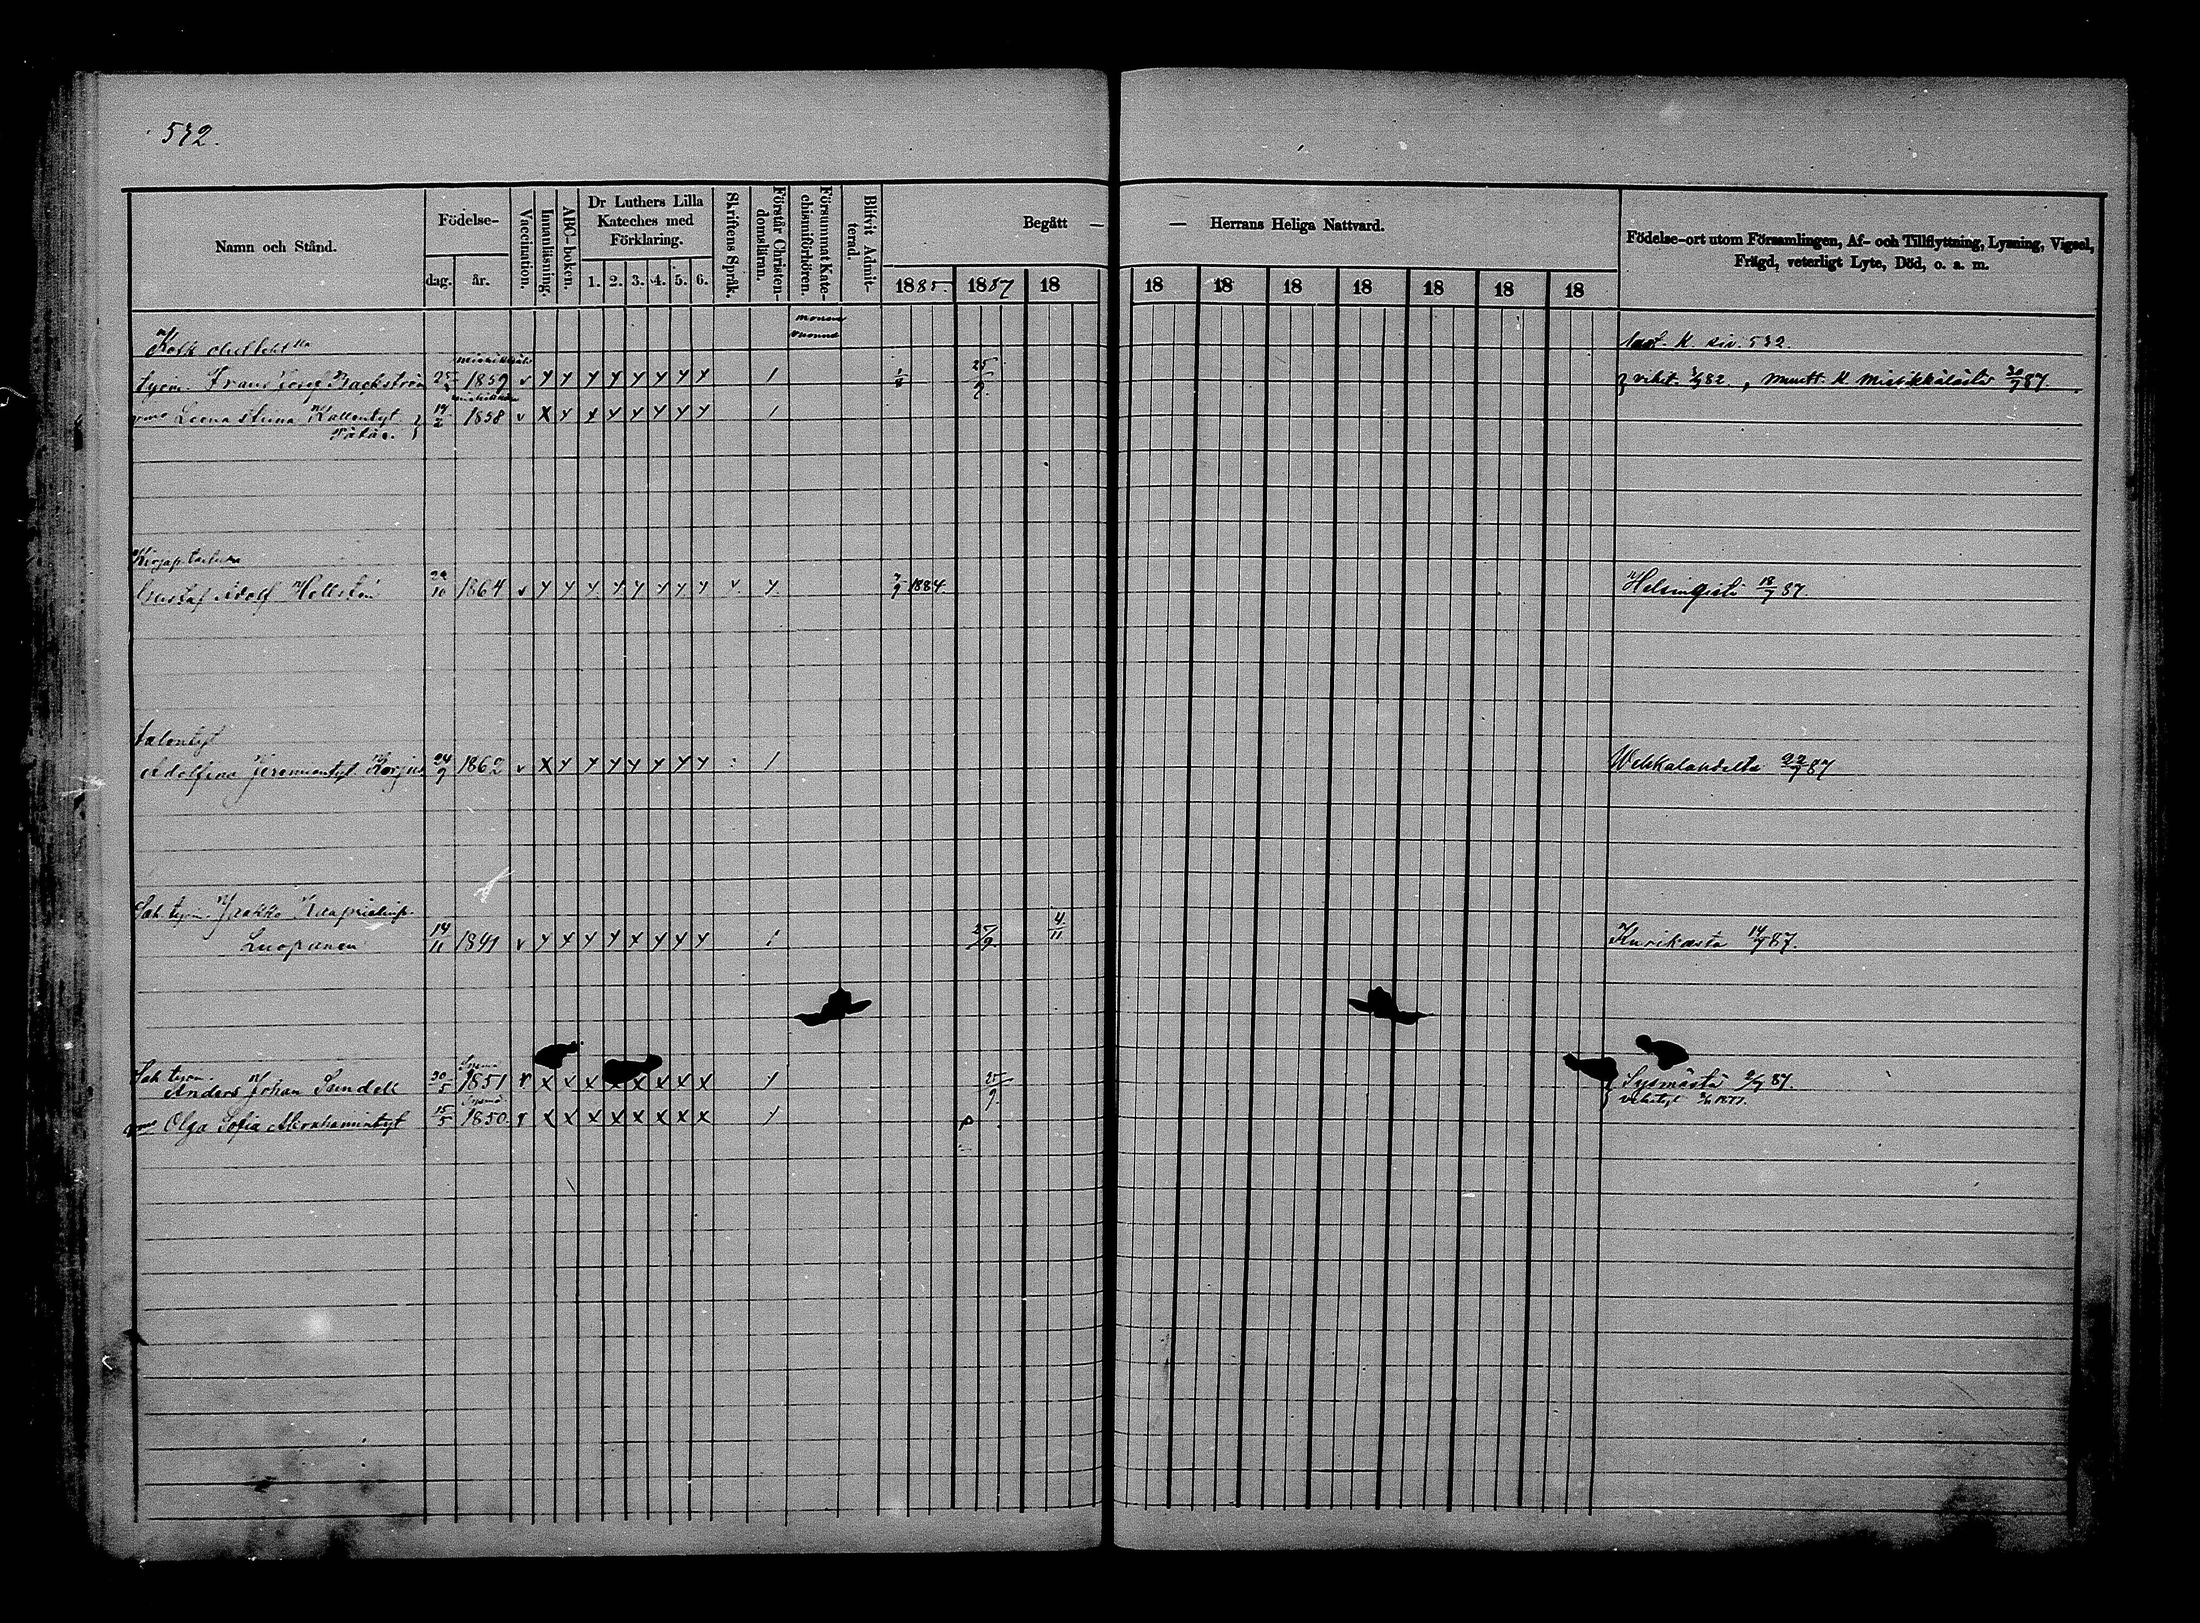 532.
Namn och Stånd.
Födelse-
dag.
år.
Vaccination.
Innanläsning.
ABC-boken.
Dr Luthers Lilla
Kateches med
Förklaring.
1. 2. 3. 4. 5. 6.
Skriftens Språk.
Förstår Christen-
domsläran.
Försummat Kate-
chismiförhören.
Blifvit Admit-
terad.
Begått — — Herrans Heliga Nattvard.
1885. 1887 18 18 18 18 18 18 18 18
Födelse-ort utom Församlingen, Af- och Tillflyttning, Lysning, Vigsel,
Frägd, veterligt Lyte, Död, o. a. m.
siv. 532.
Frans Josef Backström 25 1859 v y y y y y y y y / 25/9 vihit. 82, muutt. K Miehikkälästä 30/9 87.
Leena Stiina Kallentyt 14/2 1858 v x y x y y y y y /
Gustaf Adolf Hellstén 10 1864 v y y y y y y y y v. y. 9 1884. Helsingistä 18/7 87.
Adolfina Jeremiantyt 24/9 1862 v x y y y y y y y / Wehkalahdelta 22/9 87
Jaakko
Luopunen 14/11 1841 v y x y y x y y y / 27/9 4/11 Kurikasta 14/7 87.
Anders Johan Sundell 20/5 1851 v x x x x x x x y 25/9 Sysmästä 2/9 87.
Olga Sofia Abrahamintyt 15/5 1850. v x x x x x x x x /